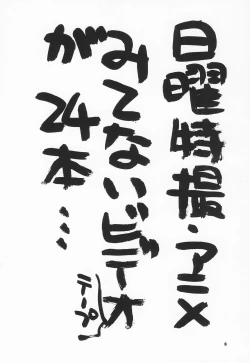 日曜特撮・アニメ
みてないビデオ
テープ
が
24本…
6